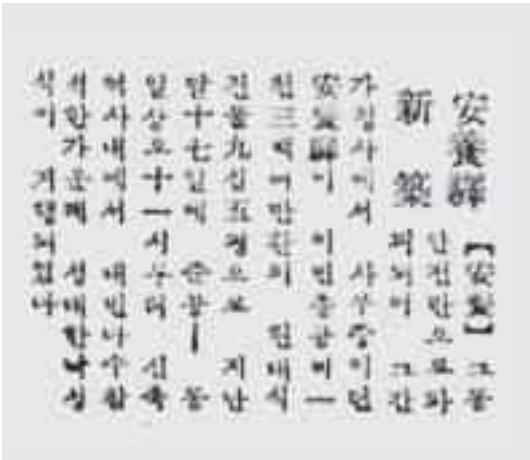 安養驛
新築
【安養】그동
안전란으로파
괴되어 그간
가청사에서 사무중이던
安養驛이 이번총공비一
천三백여만환의
건물九십五평으로 지난
十七일에 준공— 동
일상오十一시부터 신축
역사내에서 내빈다수참
석한가운데 성대한낙성
식이 거행되었다